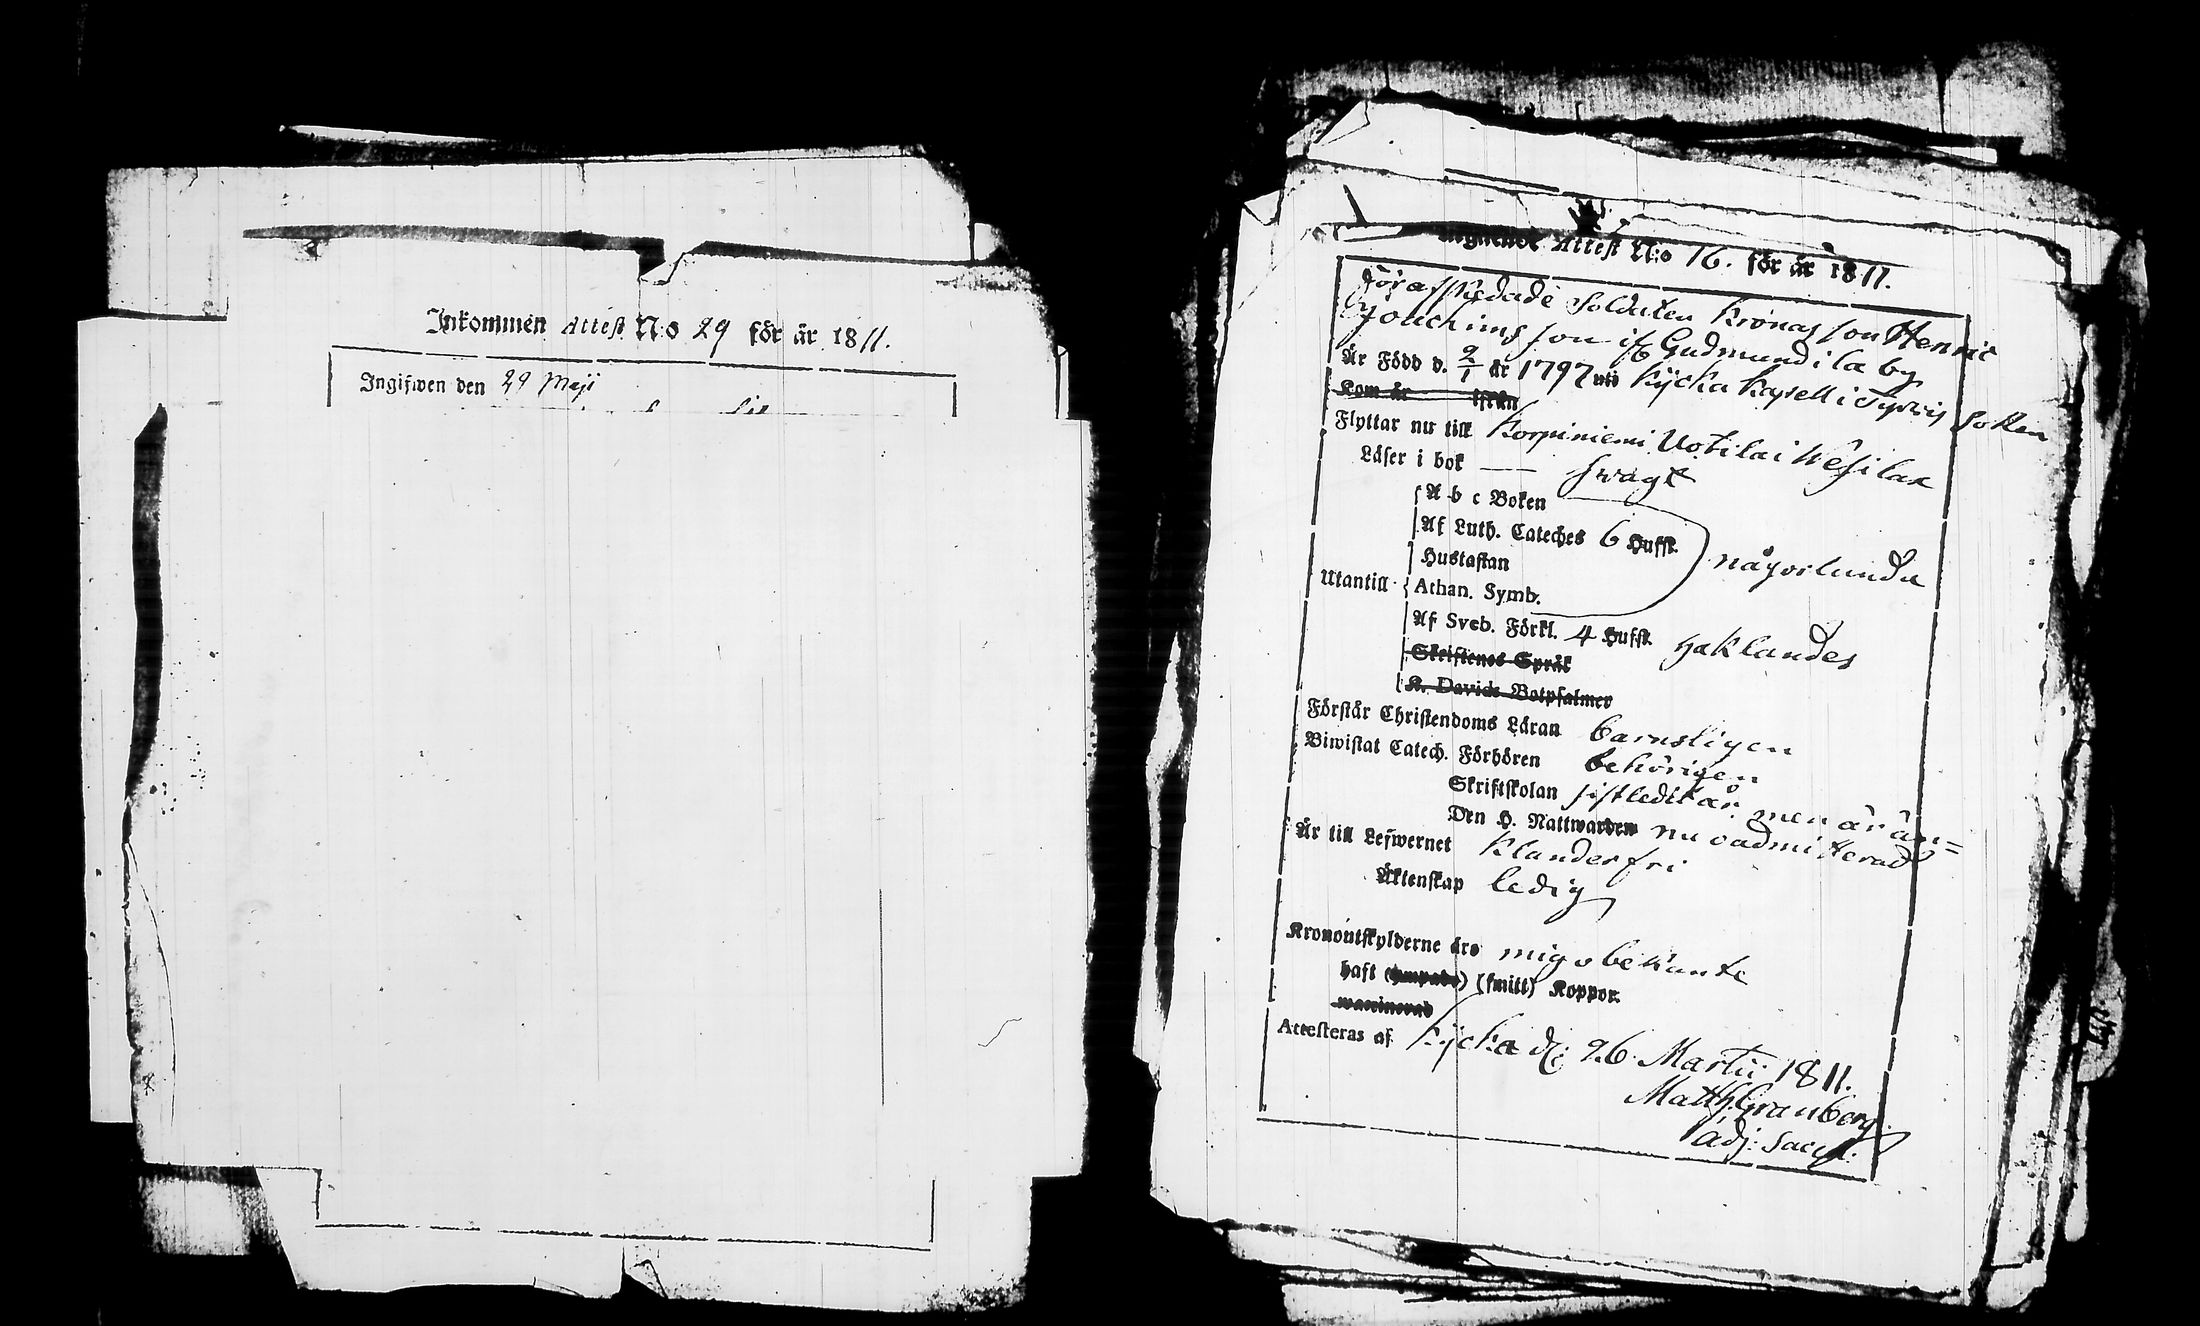 Inkommen Attest N:o 29 för år 1811.
Ingifwen den 29 Maji
Attest N:o 16. för år 1811.
Förafskedade Soldaten Kronas son Henric
Jouchimsson if Gudmundila by
Är Född d. 2/1 år 1797 wid Kycka Kapell i Tyrvis Sokn
Kom år ifrån
Flyttar nu till Korpiniemi Uotila i Wesilax
Läser i bok —— svagt
A b c Boken
Af Luth. Cateches 6 Hufst.
Hustaflan någorlunda
Utantill Athan. Symb.
Af Sveb. Förkl. 4 Hufst. haklandes
Skriftenes Språk
K. Davids Botpsalmer
Förstår Christendoms Läran barnsligen
Biwistat Catech. Förhören behörigen
Skriftskolan sistledit år men är än=
Den H. Nattwarden nu oadmitterad
Är till Lefwernet Klanderfri
Äktenskap ledig
Kronoutskylderne äro mig obekante
haft (ympade) (smitt) Koppor.
waccinerad
Attesteras af Kycka d: 26 Martii 1811.
Matth. Granberg.
Adj: Sacri: